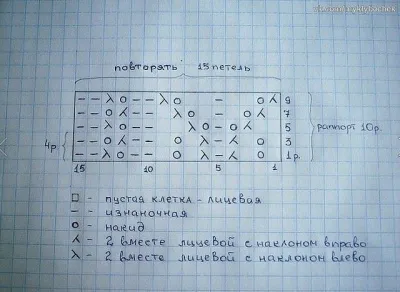 повторять 15 петель
– – λ о – – λ о – о ⋌ 9
– – λ о – – λ о – о ⋌ 7
– – λ о – – λ о – о ⋌ 5 раппорт 10р.
4р. – – λ о – – о λ – ⋌ о 3
– – λ о – – о λ – ⋌ о 1р.
15 10 5 1
□ - пустая клетка - лицевая
– - изнаночная
о - накид
⋌ - 2 вместе лицевой с наклоном вправо
λ - 2 вместе лицевой с наклоном влево